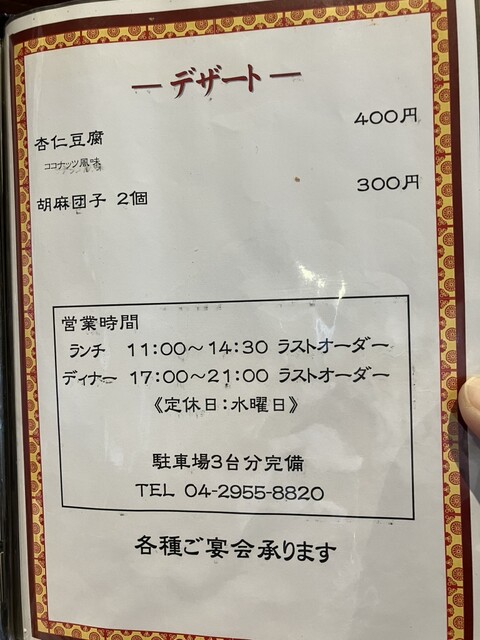 ― デザート ―
杏仁豆腐 400円
ココナッツ風味
胡麻団子 2個 300円
営業時間
ランチ 11:00～14:30 ラストオーダー
ディナー 17:00～21:00 ラストオーダー
《定休日:水曜日》
駐車場3台分完備
TEL 04-2955-8820
各種ご宴会承ります